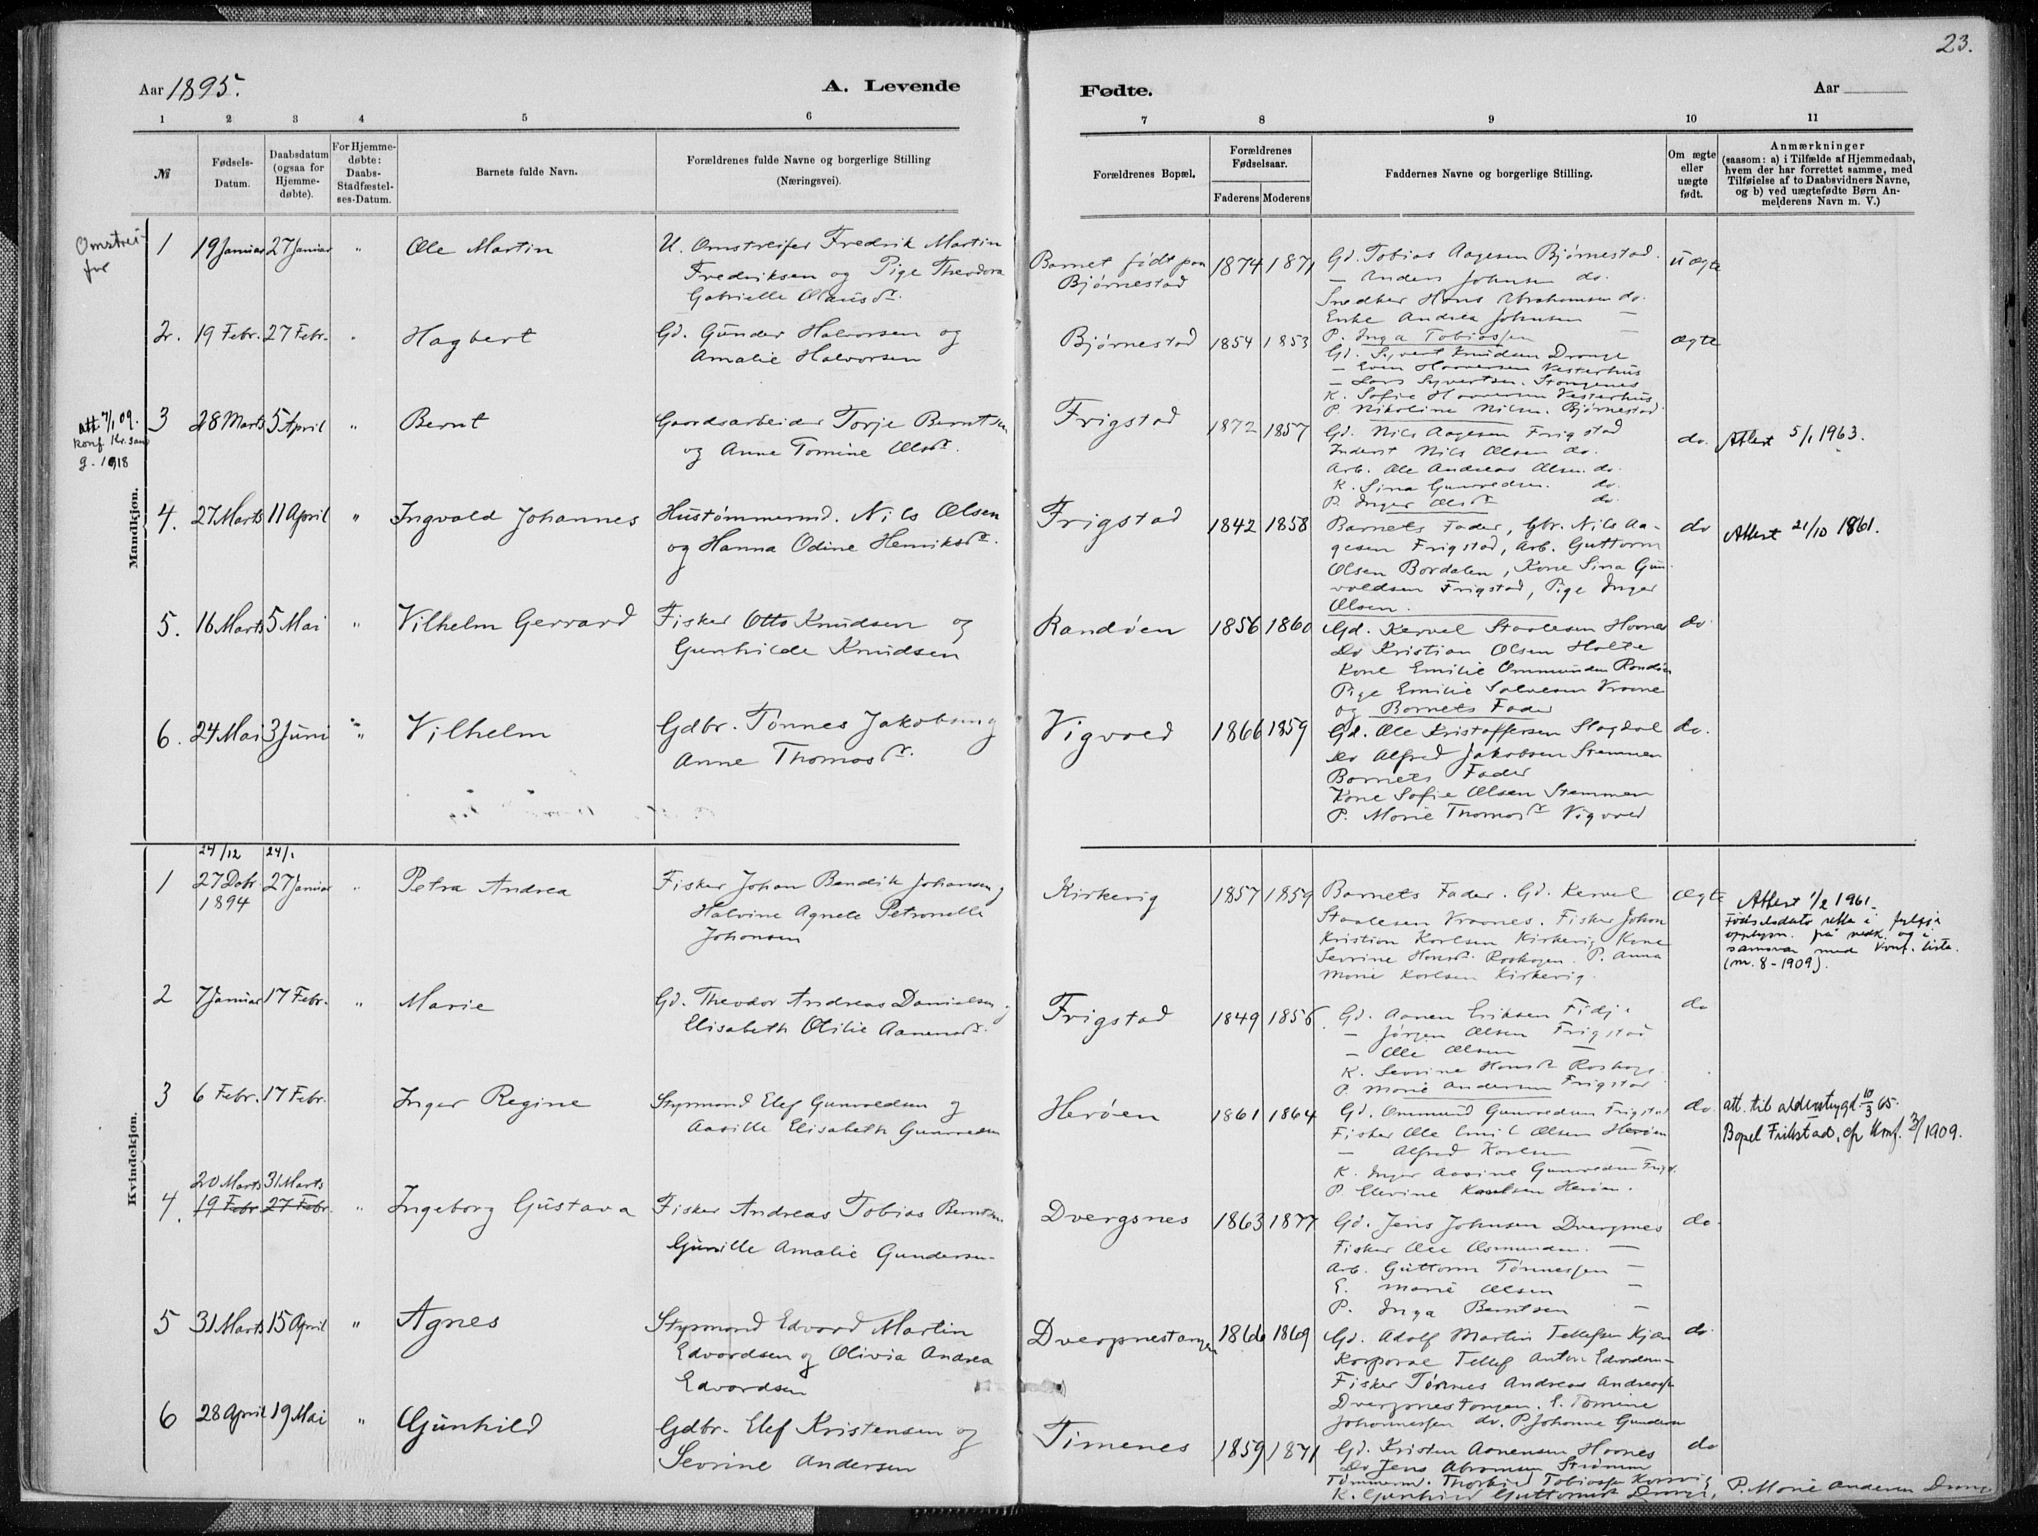 23.
Aar 1895.
A. Levende
Fødte.
Aar
1 2 3 4 5 6
7 8 9 10 11
№
Fødsels-
Datum.
Daabsdatum
(ogsaa for
Hjemme-
døbte).
For Hjemme-
døbte:
Daabs-
Stadfæstel-
ses-Datum.
Barnets fulde Navn.
Forældrenes fulde Navne og borgerlige Stilling
(Næringsvei).
Forældrenes Bopæl.
Forældrenes
Fødselsaar.
Faderens Moderens
Faddernes Navne og borgerlige Stilling.
Om ægte
eller
uægte
født.
Anmærkninger
(saasom: a) i Tilfælde af Hjemmedaab,
hvem der har forrettet samme, med
Tilføielse af to Daabsvidners Navne,
og b) ved uægtefødte Børn An-
melderens Navn m. V.)
Mandkjøn.
1 19 Januar 27 Januar " Ole Martin
U. Omstreifer Fredrik Martin
Fredriksen og Pige Theodora
Gabrielle Olausdr.
Barnet født paa
Bjørnestad
1874 1871
Gd. Tobias Aagesen Bjørnestad.
— Anders Johnsen do.
Snedker Hans Abrahamsen do.
Enke Andrea Johnsen —
P. Inga Tobiassen —
uægte
2. 19 Febr. 27 Febr. " Hagbert
Gd. Gunder Halvorsen og
Amalie Halvorsen
Bjørnestad
1854 1853
Gd. Syvert Knudsen Drange
— Even Vesterhus
— Lars Syvertsen.
K. Sofie Vesterhus
P. Nikoline Nilsen. Bjørnestad
ægte
att 7/1 09.
konf. Kr.sand
3 28 Marts 5 April " Bernt
Gaardsarbeider Torje Berntsen
og Anne Tomine Olsdr.
Frigstad
1872 1857
Gd. Nils Aagesen Frigstad
Inderst Nils Olsen do.
Arb. Ole Andreas Olsen do.
K. Sina Gunvaldsen. do.
P. Inger Olsdr do.
do.
Attest 5/1 1963.
4. 27 Marts 11 April " Ingvald Johannes
Hustømmermd. Nils Olsen
og Hanna Odine Henriksdr.
Frigstad
1842 1858
Barnets Fader, Gbr. Nils Aa-
gesen Frigstad, Arb. Guttorm
Olsen Bordalen, Kone Sina Gun-
valdsen Frigstad, Pige Inger
Olsen.
do
Attest 21/10 1961.
5. 16 Marts 5 Mai " Vilhelm Gerrard
Fisker Otto Knudsen og
Gunhilde Knudsen
Randøen
1856 1860
Gd. Kervel Staalesen
Do Kristian Olsen Holte
Kone Emilie Ommundsen Randøen
Pige Emilie Salvesen
og Barnets Fader
do.
6. 24 Mai 3 Juni " Vilhelm
Gdbr. Tønnes Jakobsen og
Anne Thomasdr.
Vigvold
1866 1859
Gd. Ole Kristoffersen Slagdal
do Alfred Jakobsen Stemmen
Barnets Fader
Kone Sofie Olsen Stemmen
P. Marie Thomasdr Vigvold
do.
Kvindekjøn.
24/12 24/1
1 27 Dcbr. 1894 27 Januar " Petra Andrea
Fisker Johan Bendik Johansen og
Halvine Agnete Petronelle
Johansen
Kirkevig
1857 1859
Barnets Fader. Gd. Kervel
Staalesen Fisker Johan
Kristian Karlsen Kirkevig, Kone
Sevrine Hansdr. Roshagen. P. Anna
Marie Karlsen Kirkevig.
Ægte
Attest 1/2 1961.
Fødselsdato i
på og i
samsvar med konf. liste.
(m. 8-1909).
2 7 Januar 17 Febr. " Marie
Gd. Theodor Andreas Danielsen og
Elisabeth Otilie Aanensdr.
Frigstad
1849 1856
Gd. Aanen Eriksen Fidje
— Jørgen Olsen Frigstad
— Ole Olsen —
K. Sevrine Hansdr
P. Marie Andersen Frigstad
do
3 6 Febr. 17 Febr. Inger Regine
Styrmand Elef Gunvaldsen og
Aasille Elisabeth Gunvaldsen
Herøen
1861 1864
Gd. Ommund Gunvaldsen Frigstad
Fisker Ole Emil Olsen Herøen
— Alfred Karlsen —
K. Inger Aasine Gunvaldsen
P. Elevine Karlsen Herøen.
do.
att. til alderstrygd. 10/3 65.
Bopel Frikstad, Konf. 1909.
20 Marts 31 Marts
4. 19 Febr 27 Febr. " Ingeborg Gustava
Fisker Andreas Tobias Berntsen
Gunille Amalie Gundersen
Dvergsnes
1863 1877
Gd. Jens Johnsen Dvergsnes
Fisker Ole Osmundsen. —
Arb. Guttorm Tønnessen —
E. Marie Olsen —
P. Inga Berntsen —
do.
5 31 Marts 15 April " Agnes
Styrmand Edvard Martin
Edvardsen og Olivia Andrea
Edvardsen
Dvergsnestangen
1866 1869
Gd. Adolf Martin Tellefsen
Korporal Tellef Anton Edvardsen
Fisker Tønnes Andreas Andreassen
Dvergsnestangen. E. Tomine
Johannessen do. P. Johanne Gundersen
do.
6 28 April 19 Mai " Gunhild
Gdbr. Elef Kristensen og
Sevrine Andersen
Timenes
1859 1871
Gd. Kristen Aanensen
Do Jens Abramsen Strømme
Tømmermd. Tobiassen
K. Gunhild P. Marie Andersen
do